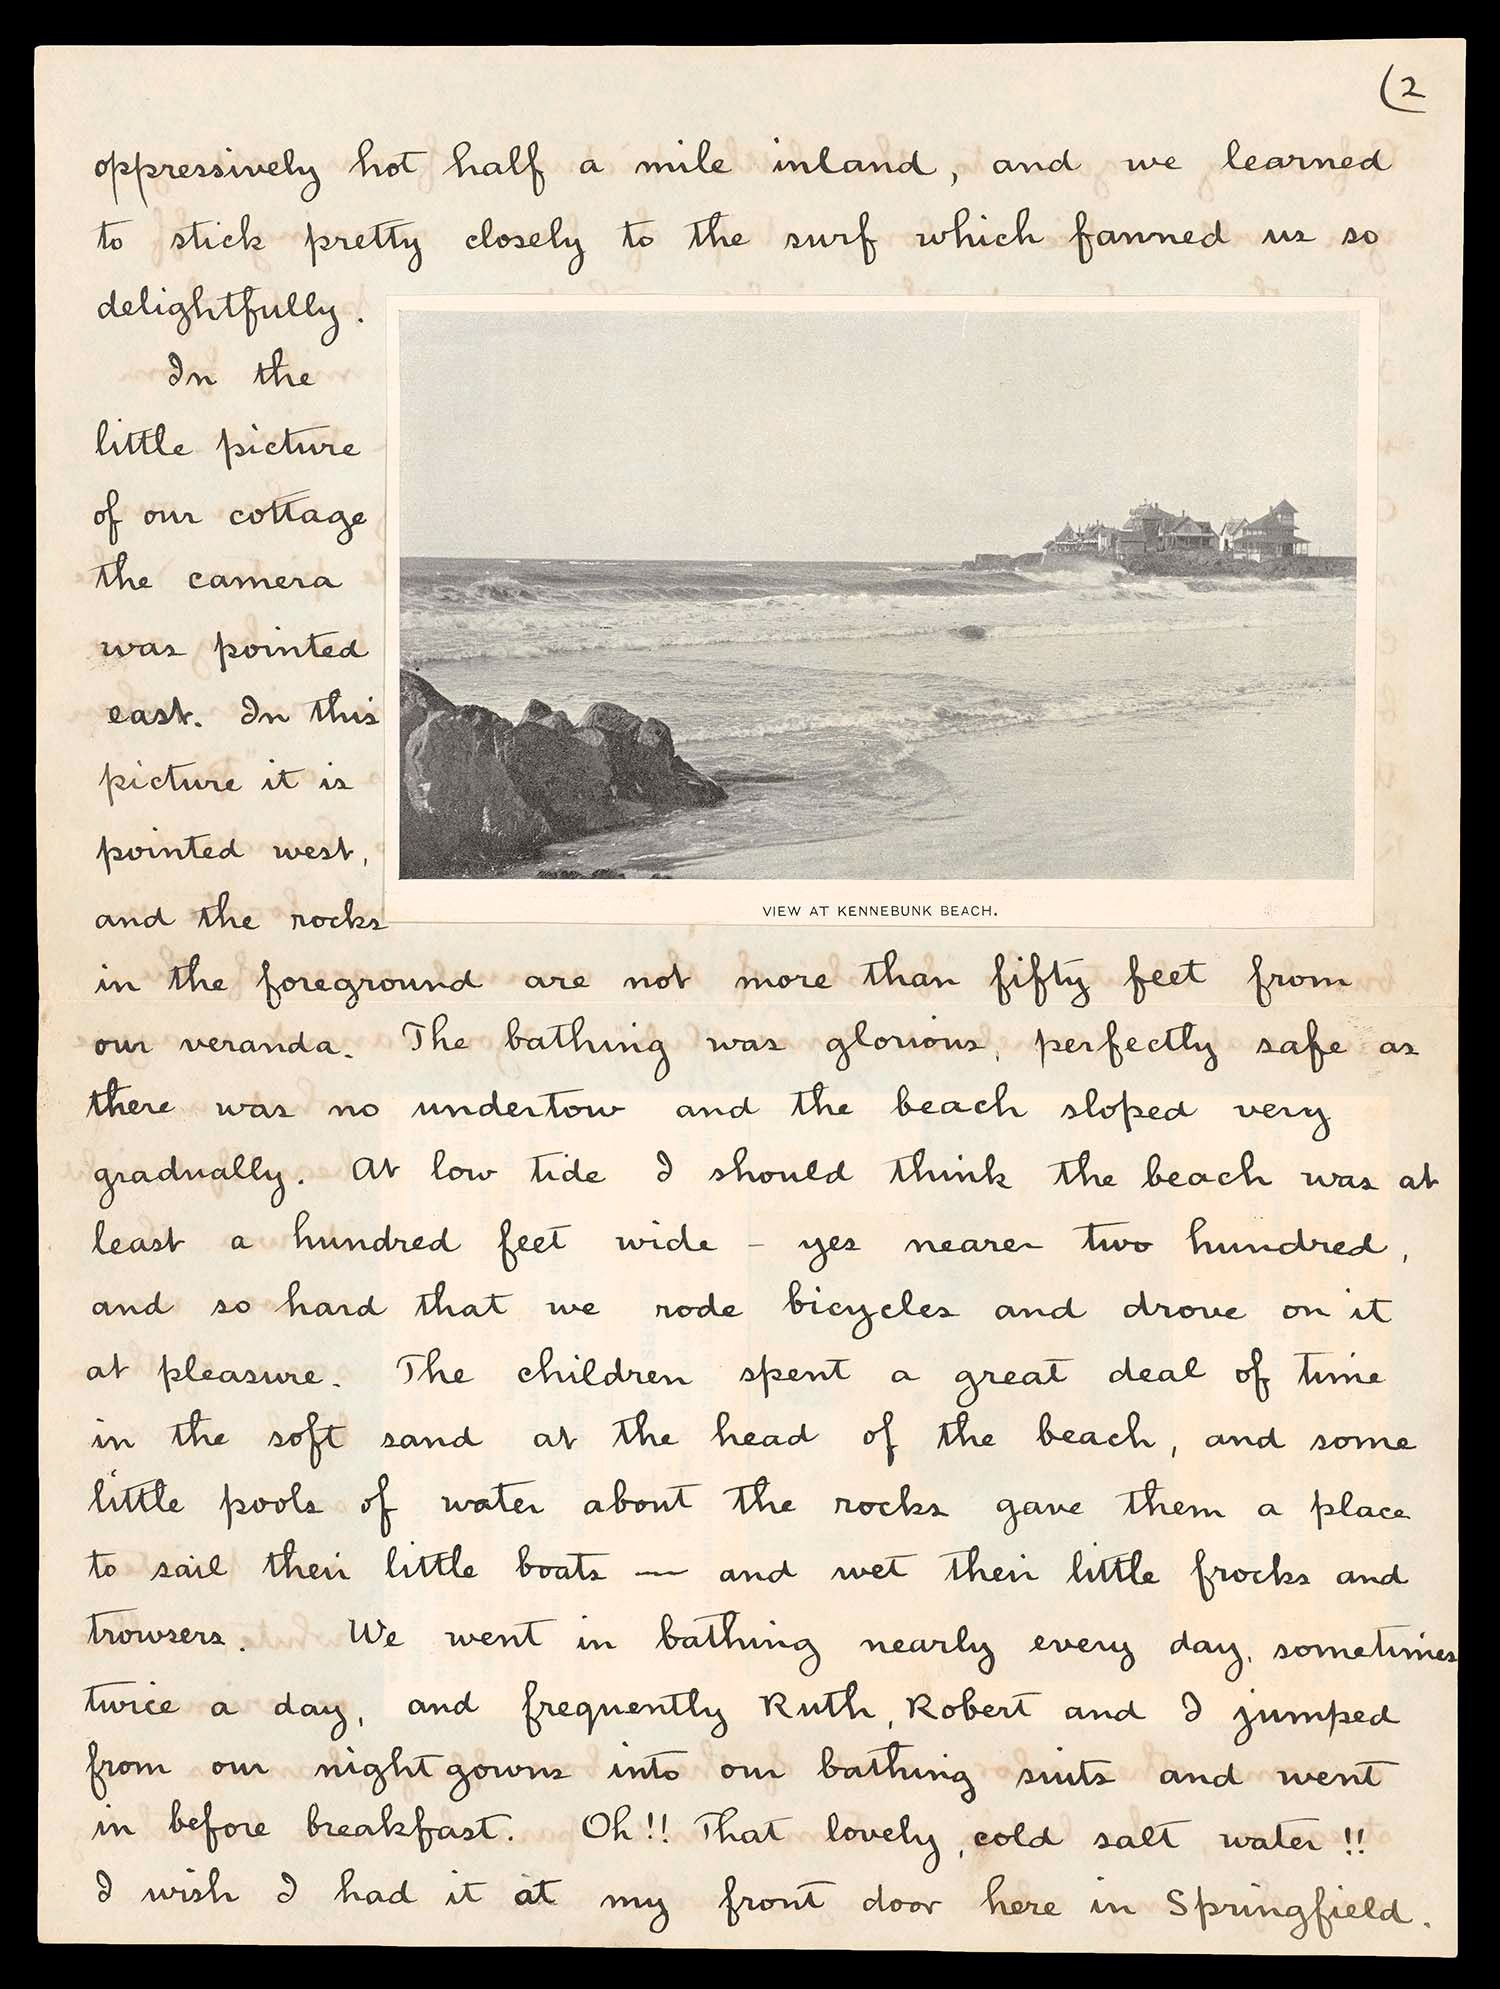 (2
oppressively hot half a mile inland, and we learned
to stick pretty closely to the surf which fanned us so
delightfully.
In the
little picture
of our cottage
the camera
was pointed
east. In this
picture it is
pointed west,
and the rocks
VIEW AT KENNEBUNK BEACH.
in the foreground are not more than fifty feet from
our veranda. The bathing was glorious, perfectly safe as
there was no undertow and the beach sloped very
gradually. At low tide I should think the beach was at
least a hundred feet wide – yes nearer two hundred,
and so hard that we rode bicycles and drove on it
at pleasure. The children spent a great deal of time
in the soft sand at the head of the beach, and some
little pools of water about the rocks gave them a place
to sail their little boats — and wet their little frocks and
trowsers. We went in bathing nearly every day, sometimes
twice a day, and frequently Ruth, Robert and I jumped
from our nightgowns into our bathing suits and went
in before breakfast. Oh!! That lovely, cold salt water!!
I wish I had it at my front door here in Springfield.